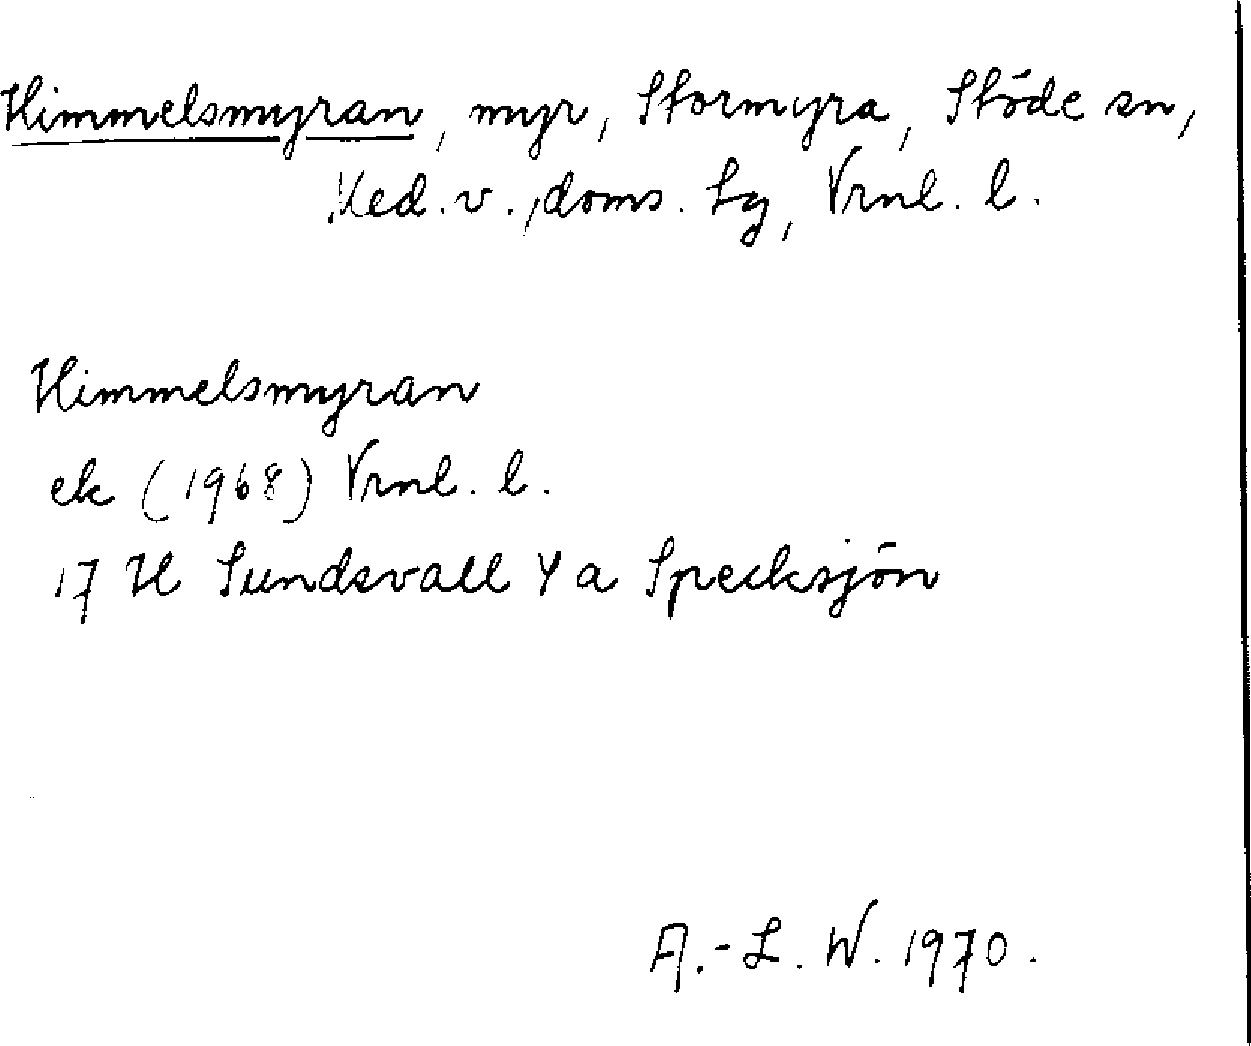 Himmelsmyran, myr, Stormyra, Stöde sn,
Med. v., doms. Lg, Vrnl. l.
Himmelsmyran
ek (1968) Vrnl. l.
17 H Sundsvall Y a Specksjön
A.-L. W. 1970.